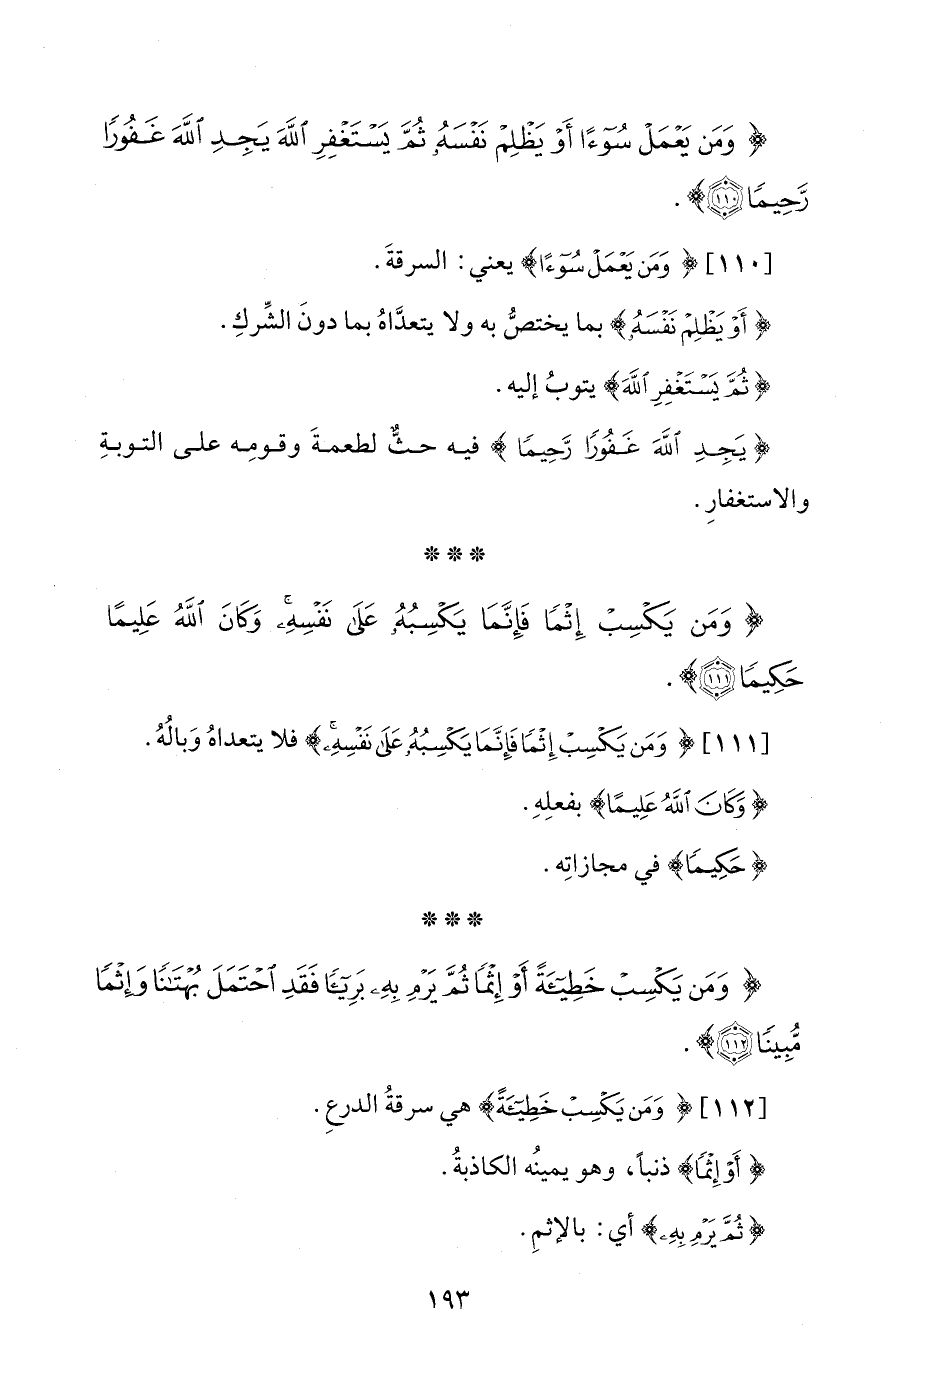 ﴿ وَمَن يَعْمَلْ سُوٓءًا أَوْ يَظْلِمْ نَفْسَهُۥ ثُمَّ يَسْتَغْفِرِ ٱللَّهَ يَجِدِ ٱللَّهَ غَفُورًا
رَّحِيمًا ١١٠﴾ .
[١١٠] ﴿ وَمَن يَعْمَلْ سُوٓءًا﴾ يعني : السرقةَ .
﴿ أَوْ يَظْلِمْ نَفْسَهُۥ﴾ بما يختصُّ به ولا يتعدَّاهُ بما دونَ الشِّركِ .
﴿ ثُمَّ يَسْتَغْفِرِ ٱللَّهَ﴾ يتوبُ إليه .
﴿ يَجِدِ ٱللَّهَ غَفُورًا رَّحِيمًا ﴾ فيه حثٌّ لطعمةَ وقومِه على التوبةِ
والاستغفارِ .
* * *
﴿ وَمَن يَكْسِبْ إِثْمًا فَإِنَّمَا يَكْسِبُهُۥ عَلَىٰ نَفْسِهِۦۚ وَكَانَ ٱللَّهُ عَلِيمًا
حَكِيمًا ١١١﴾ .
[١١١] ﴿ وَمَن يَكْسِبْ إِثْمًا فَإِنَّمَا يَكْسِبُهُۥ عَلَىٰ نَفْسِهِۦۚ﴾ فلا يتعداهُ وَبالُهُ .
﴿ وَكَانَ ٱللَّهُ عَلِيمًا﴾ بفعلِهِ .
﴿ حَكِيمًا﴾ في مجازاتِه .
* * *
﴿ وَمَن يَكْسِبْ خَطِيٓـَٔةً أَوْ إِثْمًا ثُمَّ يَرْمِ بِهِۦ بَرِيٓـًٔا فَقَدِ ٱحْتَمَلَ بُهْتَٰنًا وَإِثْمًا
مُّبِينًا ١١٢﴾ .
[١١٢] ﴿ وَمَن يَكْسِبْ خَطِيٓـَٔةً﴾ هي سرقةُ الدرعِ .
﴿ أَوْ إِثْمًا﴾ ذنباً، وهو يمينُه الكاذبةُ .
﴿ ثُمَّ يَرْمِ بِهِۦ﴾ أي : بالإثمِ .
١٩٣